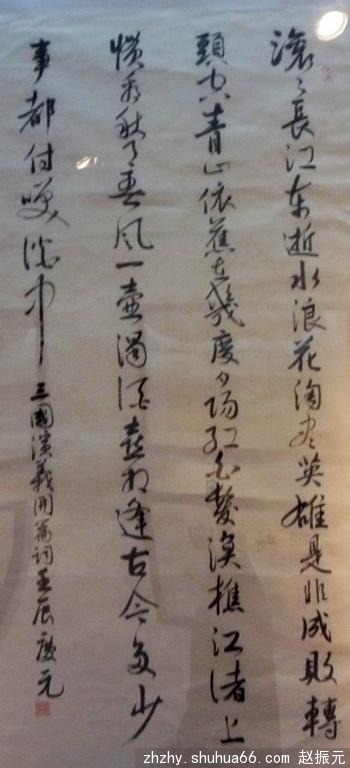 滚々長江东逝水浪花淘尽英雄是非成败轉
頭空青山依舊在幾度夕阳红白髮渔樵江渚上
惯看秋月春風一壺濁酒喜相逢古今多少
事都付笑谈中
三國演義開篇词壬辰振元
zhzhy.shuhua66.com 赵振元